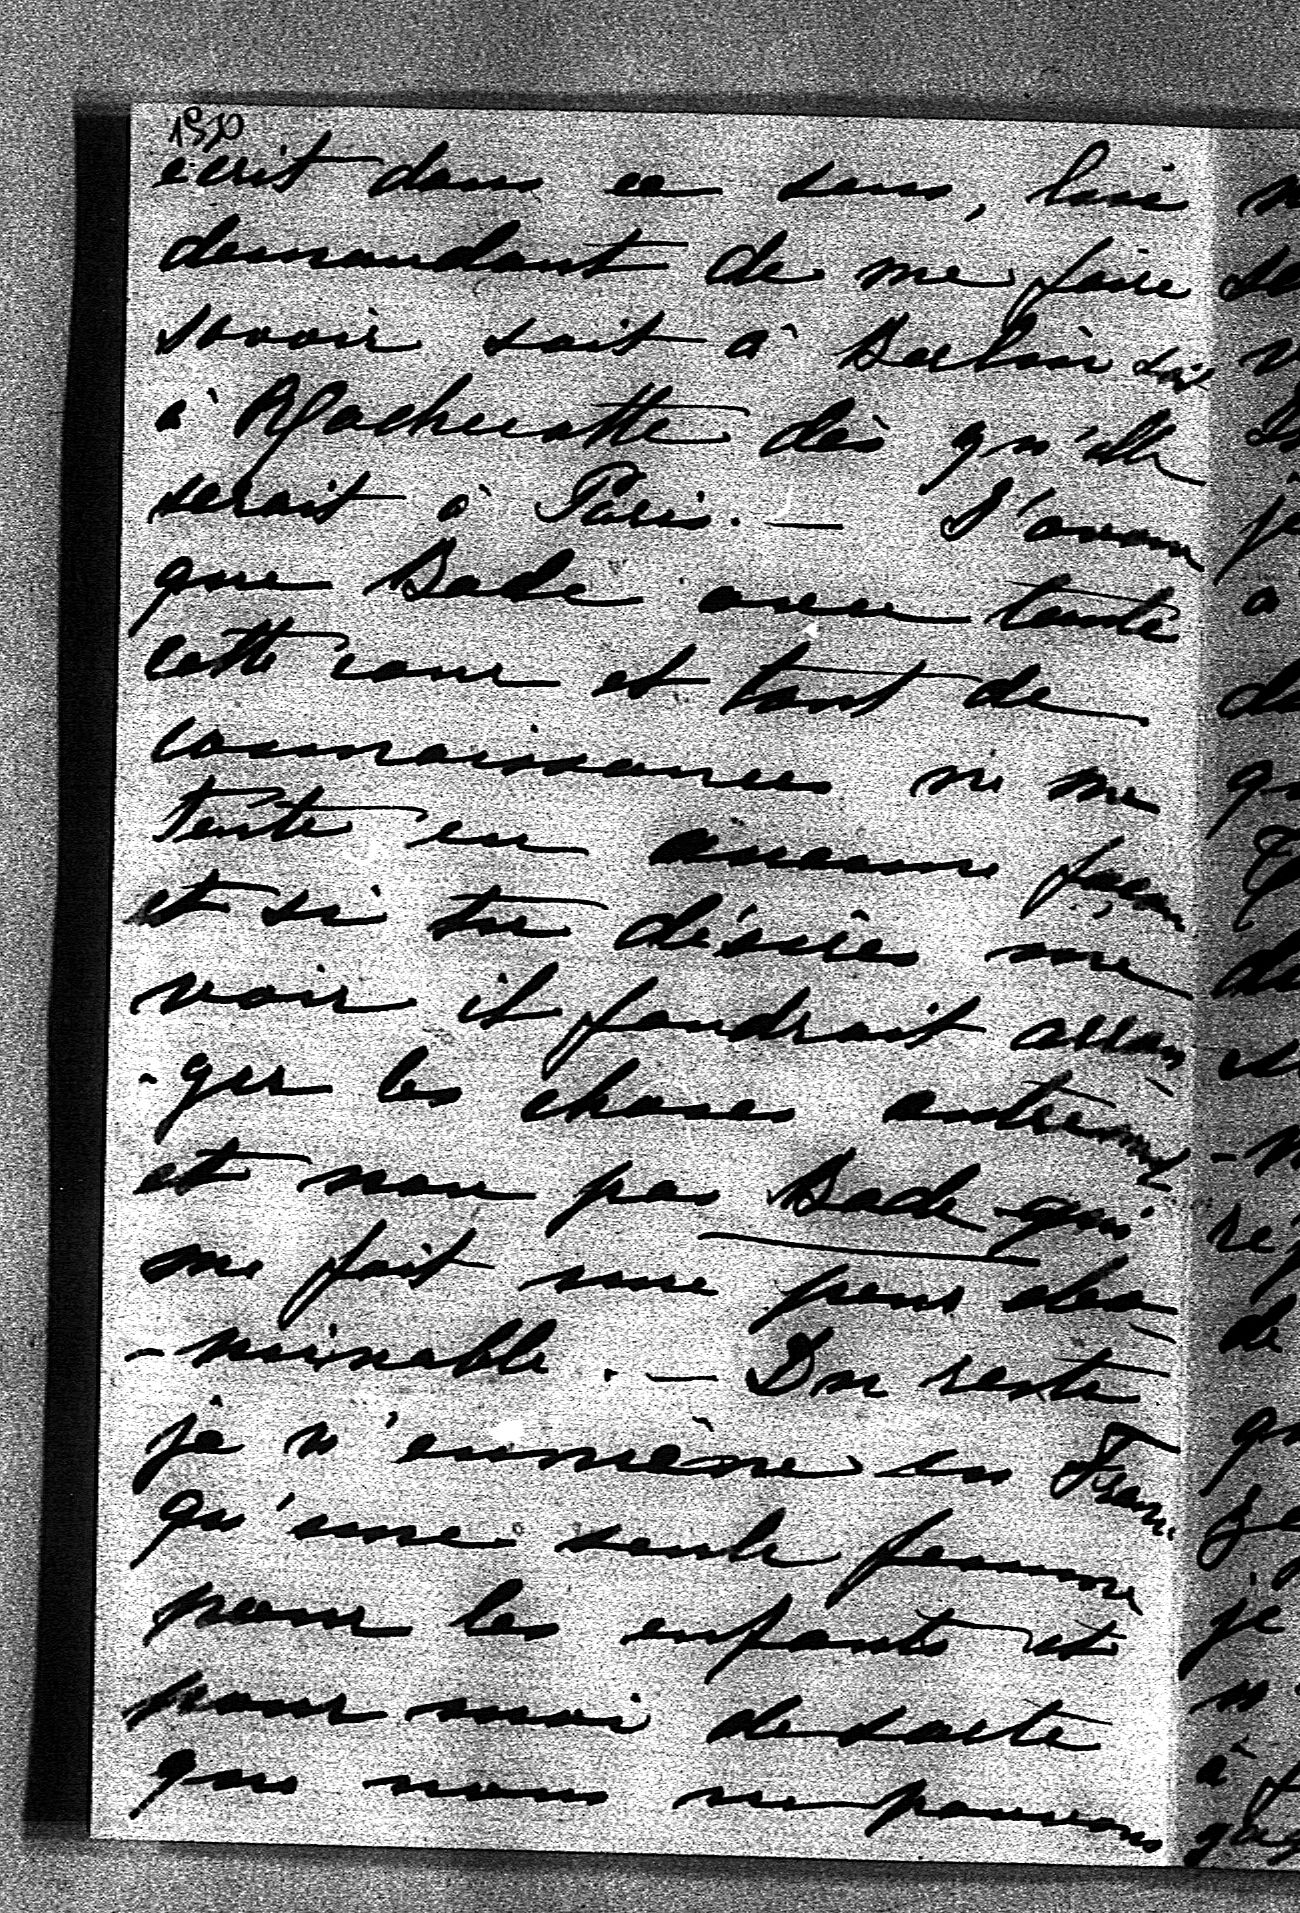 1550
écrit dans ce sens, lui
demandant de me faire
savoir soit à Berlin soit
à Rochecotte dès qu'elle
serait à Paris. — J'avoue
que Bade avec toute
cette cour et tant de
connaissances ne me
tente en aucune façon
et si tu désires me
voir il faudrait arran
-ger les choses autrement
et non pas Bade qui
me fait une peur abo
-minable. — Du reste
je n'emmène en France
qu'une seule femme
pour les enfants et
pour moi de sorte
que nous ne pouvons